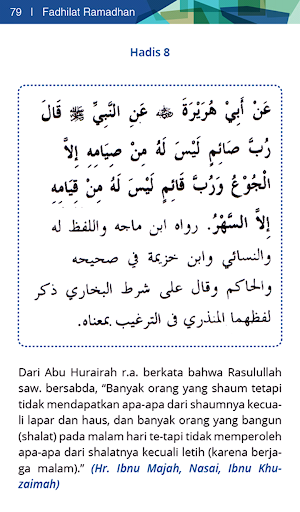 79 | Fadhilat Ramadhan
Hadis 8
عَنْ أَبِيْ هُرَيْرَةَ ﵁ عَنِ النَّبِيِّ ﷺ قَالَ
رُبَّ صَائِمٍ لَيْسَ لَهُ مِنْ صِيَامِهِ إِلاَّ
الْجُوْعُ وَرُبَّ قَائِمٍ لَيْسَ لَهُ مِنْ قِيَامِهِ
إِلاَّ السَّهْرُ. رواه ابن ماجه واللفظ له
والنسائي وابن خزيمة في صحيحه
والحاكم وقال على شرط البخاري ذكر
لفظهما المنذري في الترغيب بمعناه.
Dari Abu Hurairah r.a. berkata bahwa Rasulullah
saw. bersabda, “Banyak orang yang shaum tetapi
tidak mendapatkan apa-apa dari shaumnya kecua-
li lapar dan haus, dan banyak orang yang bangun
(shalat) pada malam hari te-tapi tidak memperoleh
apa-apa dari shalatnya kecuali letih (karena berja-
ga malam).” (Hr. Ibnu Majah, Nasai, Ibnu Khu-
zaimah)